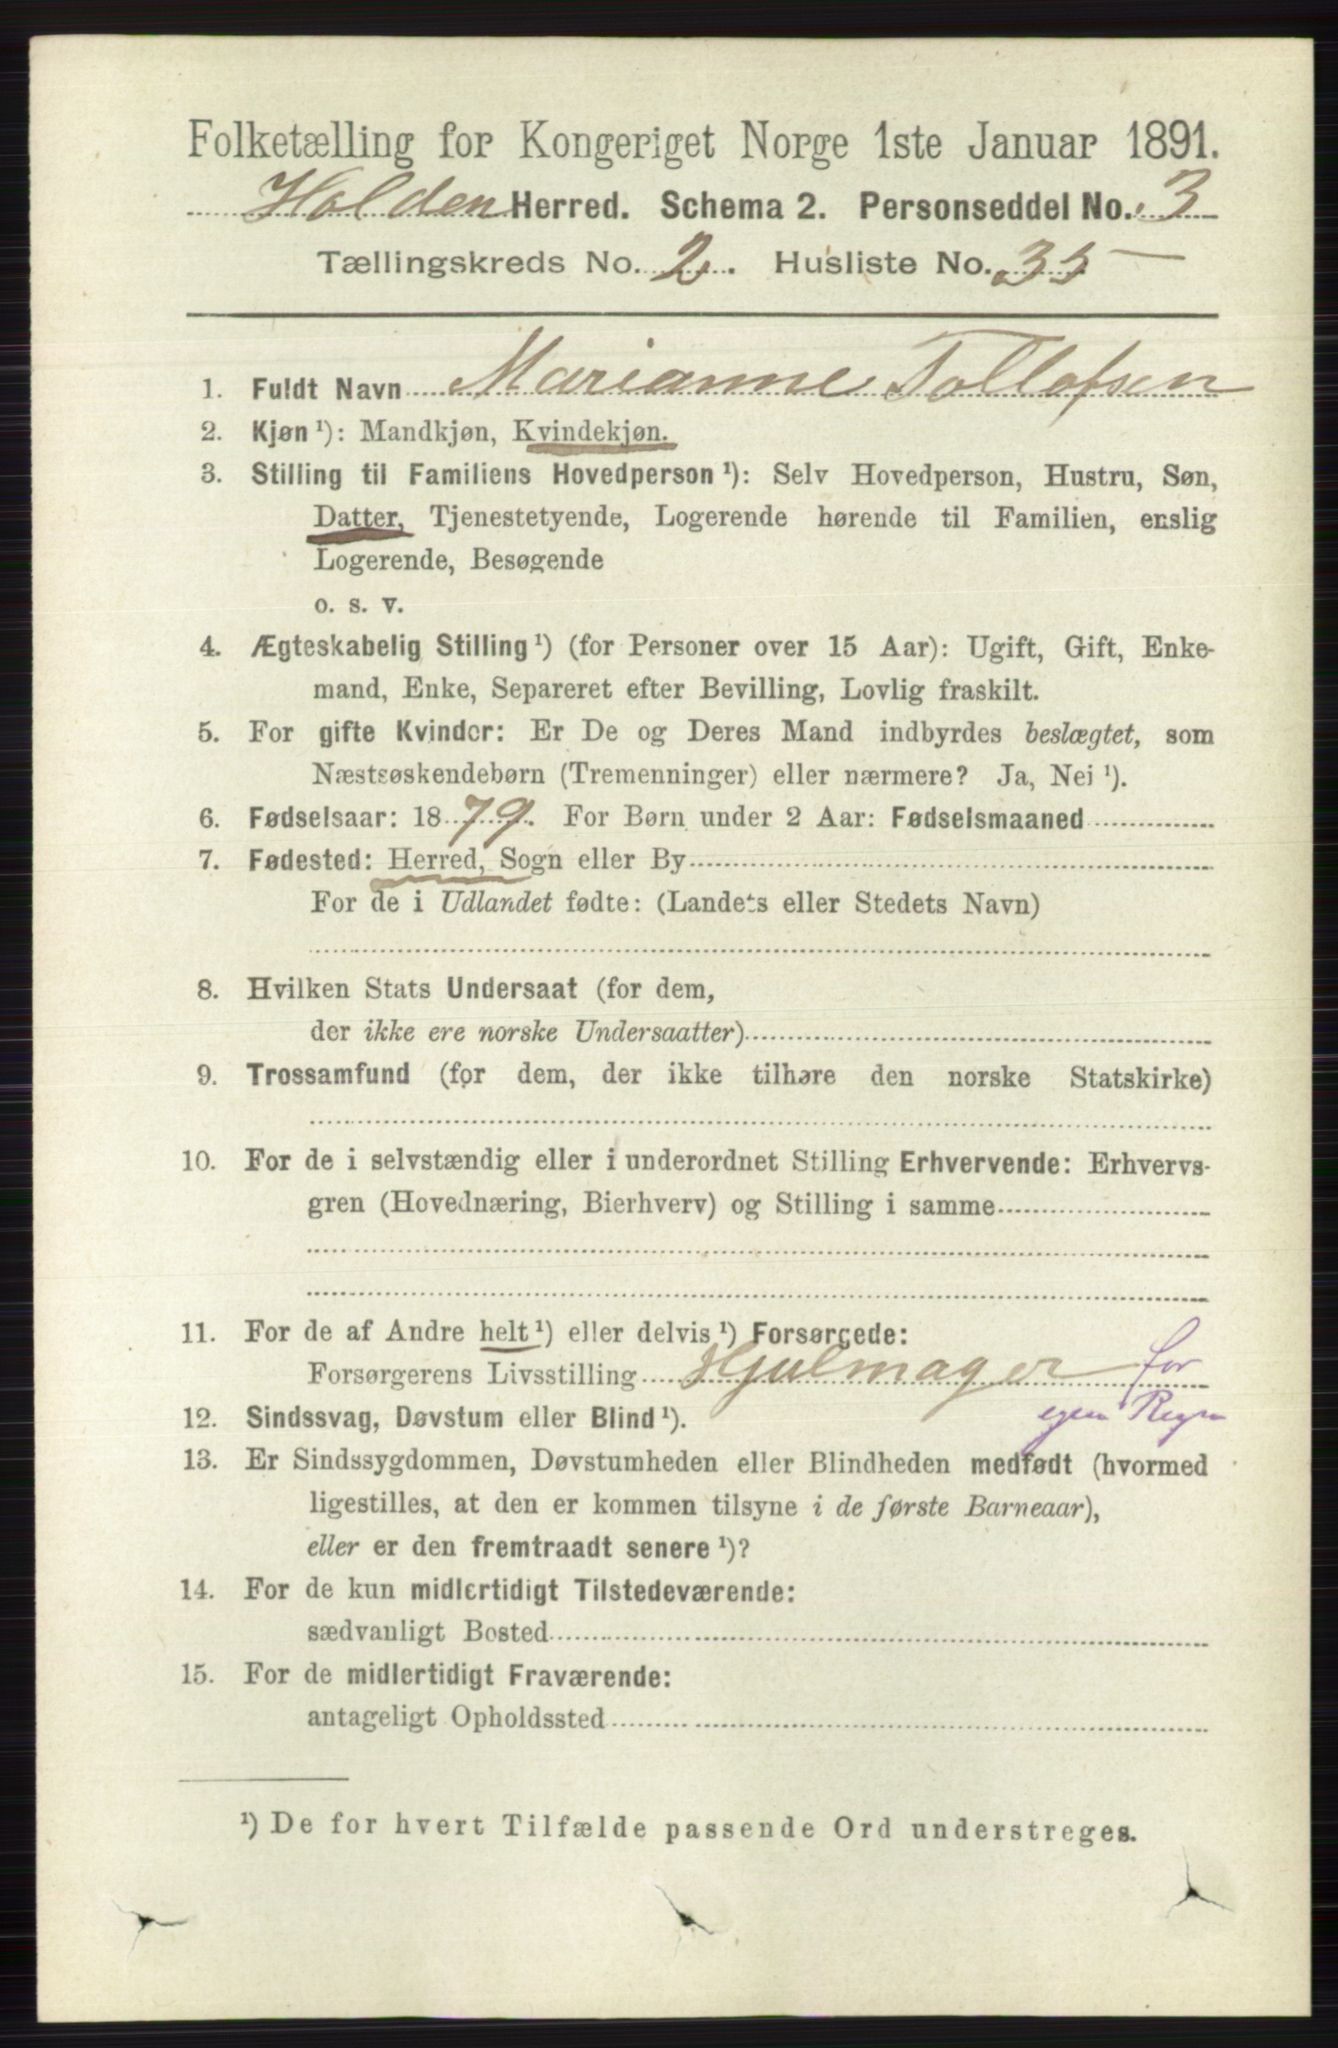 Folketælling for Kongeriget Norge 1ste Januar 1891.
Holden Herred. Schema 2. Personseddel No. 3
Tællingskreds No. 2. Husliste No. 35
1. Fuldt Navn Marianne Tollofsen
2. Kjøn ¹): Mandkjøn, Kvindekjøn.
3. Stilling til Familiens Hovedperson ¹): Selv Hovedperson, Hustru, Søn,
Datter, Tjenestetyende, Logerende hørende til Familien, enslig
Logerende, Besøgende
o. s. v.
4. Ægteskabelig Stilling ¹) (for Personer over 15 Aar): Ugift, Gift, Enke-
mand, Enke, Separeret efter Bevilling, Lovlig fraskilt.
5. For gifte Kvinder: Er De og Deres Mand indbyrdes beslægtet, som
Næstsøskendebørn (Tremenninger) eller nærmere? Ja, Nei ¹).
6. Fødselsaar: 1879. For Børn under 2 Aar: Fødselsmaaned
7. Fødested: Herred, Sogn eller By
For de i Udlandet fødte: (Landets eller Stedets Navn)
8. Hvilken Stats Undersaat (for dem,
der ikke ere norske Undersaatter)
9. Trossamfund (for dem, der ikke tilhøre den norske Statskirke)
10. For de i selvstændig eller i underordnet Stilling Erhvervende: Erhvervs-
gren (Hovednæring, Bierhverv) og Stilling i samme
11. For de af Andre helt ¹) eller delvis ¹) Forsørgede:
Forsørgerens Livsstilling Hjulmager for
egen Regn
12. Sindssvag, Døvstum eller Blind ¹).
13. Er Sindssygdommen, Døvstumheden eller Blindheden medfødt (hvormed
ligestilles, at den er kommen tilsyne i de første Barneaar),
eller er den fremtraadt senere ¹)?
14. For de kun midlertidigt Tilstedeværende:
sædvanligt Bosted
15. For de midlertidigt Fraværende:
antageligt Opholdssted
¹) De for hvert Tilfælde passende Ord understreges.